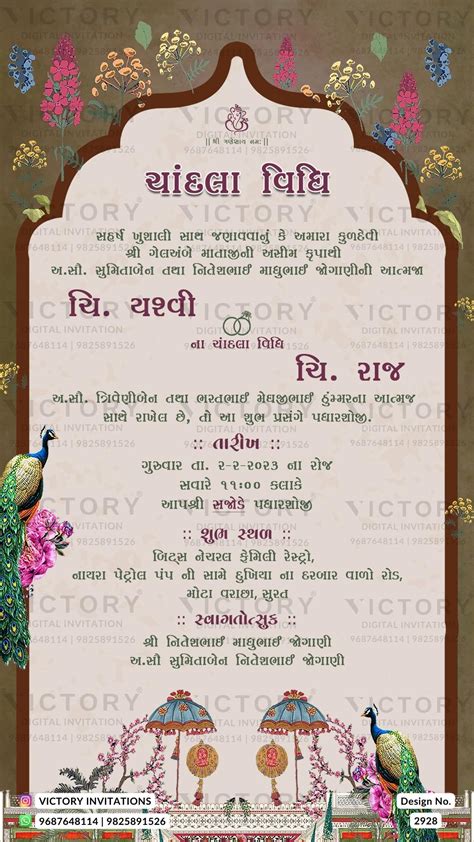 || શ્રી ગણેશાય નમઃ ||
ચાંદલા વિધિ
સહર્ષ ખુશાલી સાથ જણાવવાનું કે અમારા કુળદેવી
શ્રી ગેલઅંબે માતાજીની અસીમ કૃપાથી
અ.સૌ. સુમિતાબેન તથા નિતેશભાઈ માધુભાઈ જોગાણીની આત્મજા
ચિ. યશ્વી
ના ચાંદલા વિધિ
ચિ. રાજ
અ.સૌ. ત્રિવેણીબેન તથા ભરતભાઈ મેઘજીભાઈ ડુંમ્મરના આત્મજ
સાથે રાખેલ છે, તો આ શુભ પ્રસંગે પધારશોજી.
:: તારીખ ::
ગુરુવાર તા. ૨-૨-૨૦૨૩ ના રોજ
સવારે ૧૧:૦૦ કલાકે
આપશ્રી સજોડે પધારશોજી
:: શુભ સ્થળ ::
બિટ્સ નેચરલ ફેમિલી રેસ્ટ્રો,
નાયરા પેટ્રોલ પંપ ની સામે દુખિયા ના દરબાર વાળો રોડ,
મોટા વરાછા, સુરત
:: સ્વાગતોત્સુક ::
શ્રી નિતેશભાઈ માધુભાઈ જોગાણી
અ.સૌ સુમિતાબેન નિતેશભાઈ જોગાણી
VICTORY INVITATIONS
9687648114 | 9825891526
Design No.
2928
VICTORY
DIGITAL INVITATION
9687648114 | 9825891526